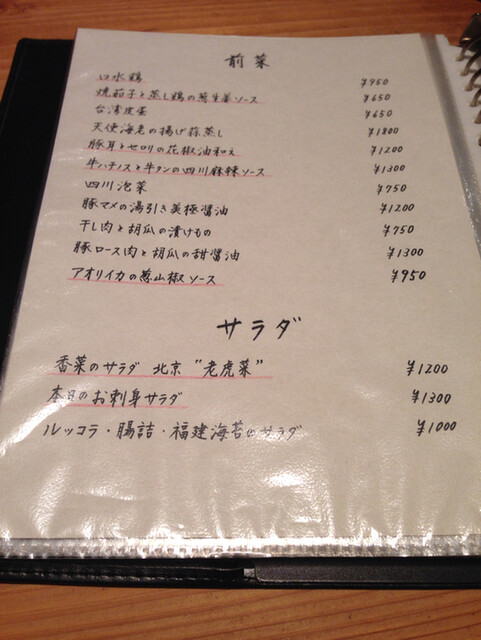 前菜
口水鶏 ¥950
焼茄子と蒸し鶏の葱生姜ソース ¥650
台湾皮蛋 ¥650
天使海老の揚げ蒜蒸し ¥1800
豚耳とセロリの花椒油和え ¥1200
牛ハチノスと牛タンの四川麻辣ソース ¥1300
四川泡菜 ¥750
豚マメの湯引き美極醤油 ¥1200
干し肉と胡瓜の漬けもの ¥750
豚ロース肉と胡瓜の甜醤油 ¥1300
アオリイカの葱山椒ソース ¥950
サラダ
香菜のサラダ 北京 "老虎菜" ¥1200
本日のお刺身サラダ ¥1300
ルッコラ・腸詰・福建海苔のサラダ ¥1000